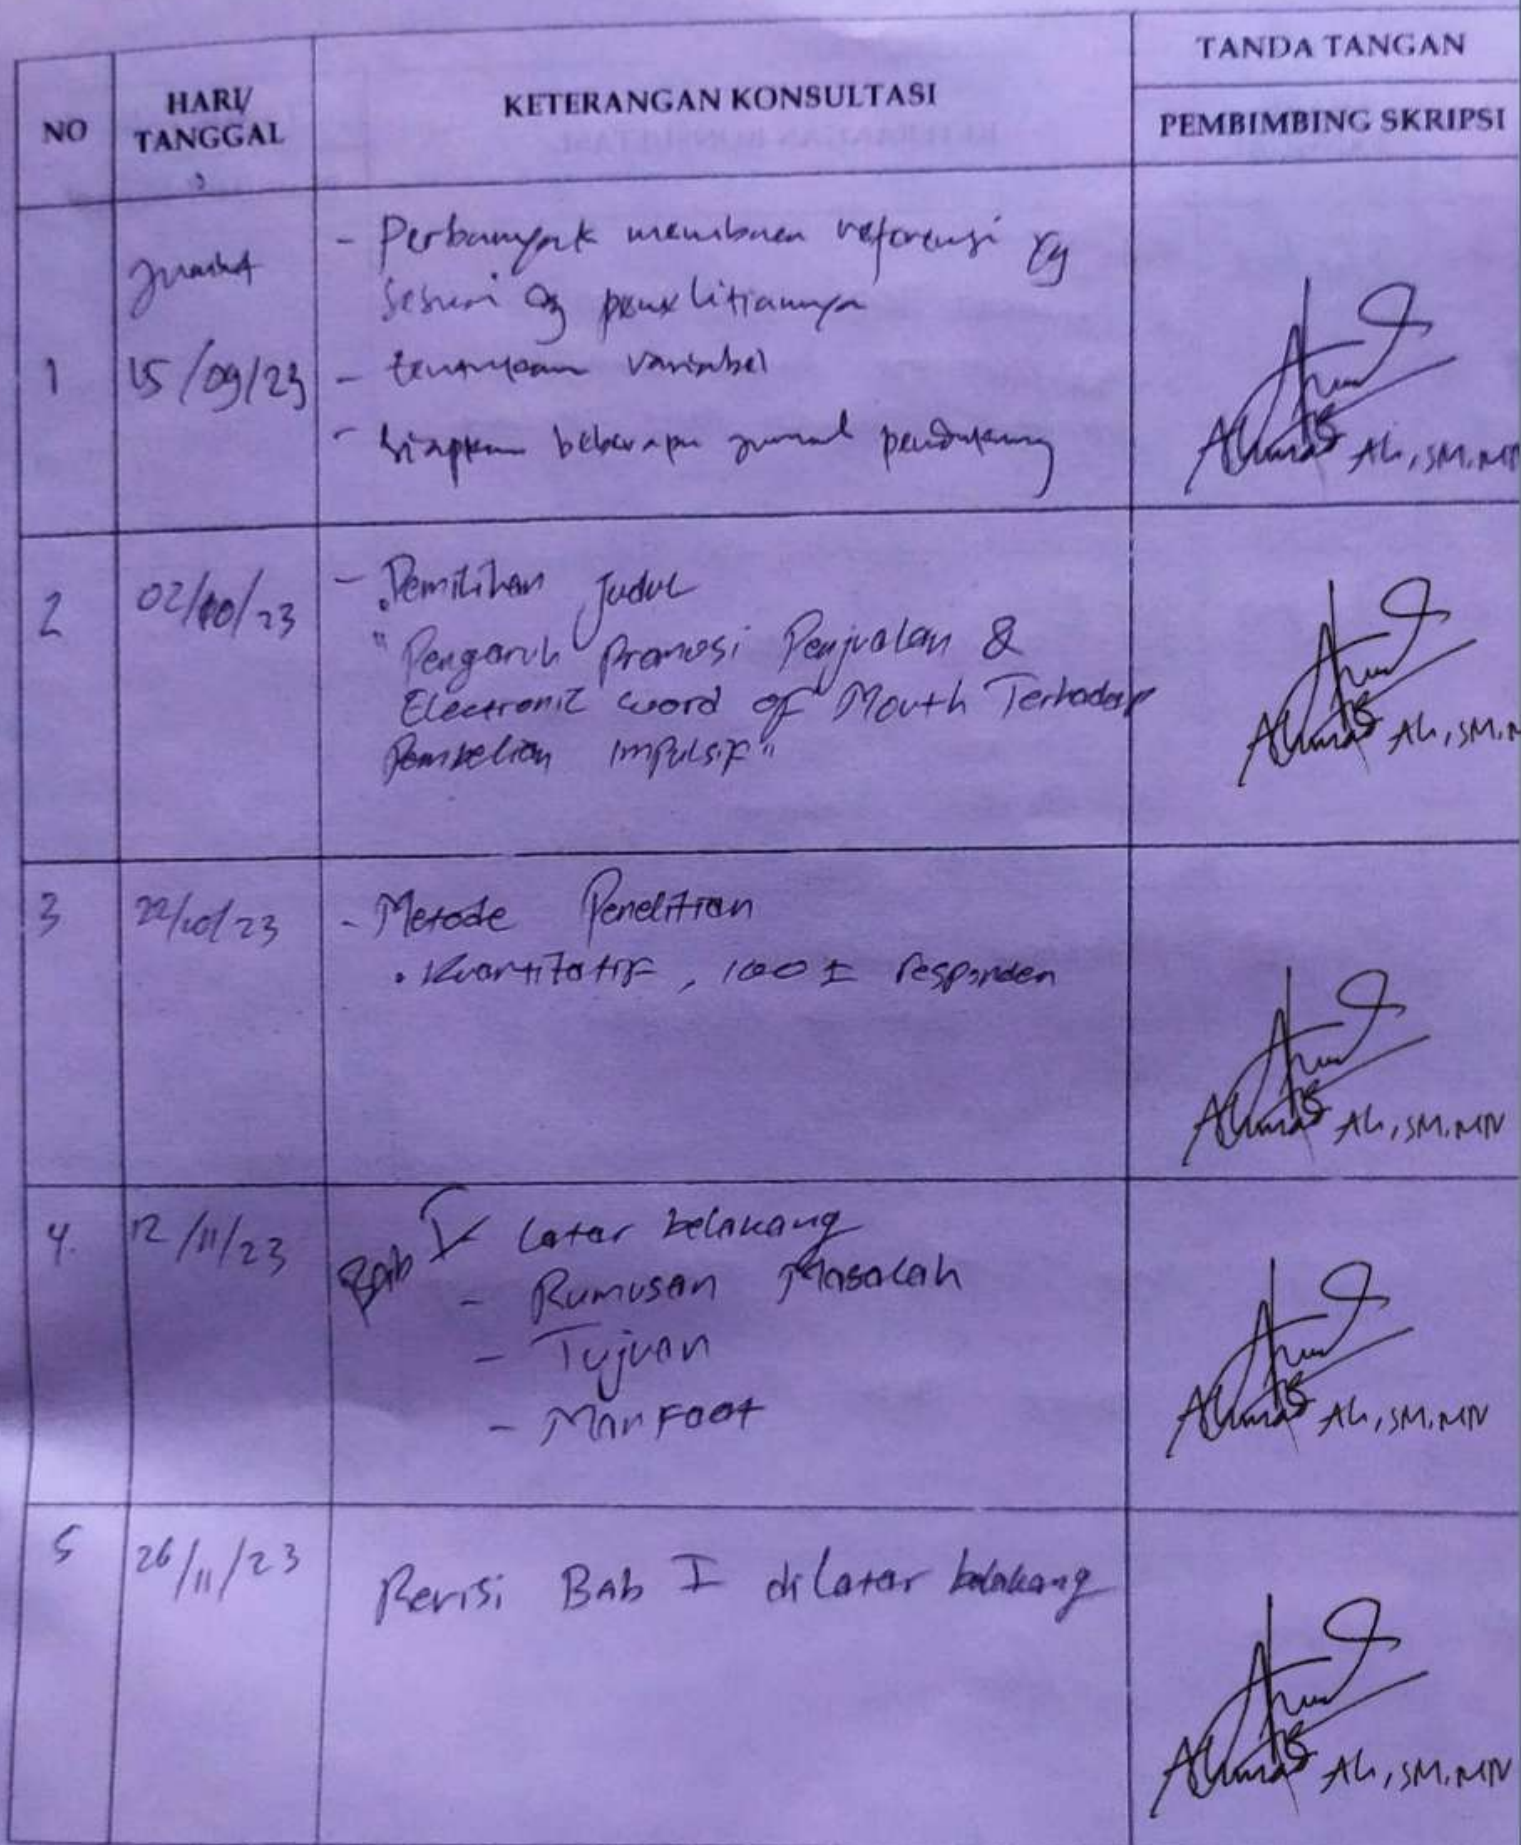 NO
HARI/
TANGGAL
KETERANGAN KONSULTASI
TANDA TANGAN
PEMBIMBING SKRIPSI
1
Jumat
15/09/23
- Perbanyak membaca referensi yg
Sesuai dg penelitiannya
- tentukan variabel
- Siapkan beberapa jurnal pendukung
Ali, SM.
2
02/10/23
- Pemilihan Judul
"Pengaruh Promosi Penjualan &
Electronic word of Mouth Terhadap
Pembelian Impulsif"
Ali, SM.
3
22/10/23
- Metode Penelitian
. Kuantitatif, 100 ± responden
Ali, SM.MM
4.
12/11/23
Bab I Latar belakang
- Rumusan Masalah
- Tujuan
- Manfaat
Ali, SM.MM
5
26/11/23
Revisi BAb I di latar belakang
Ali, SM.MM